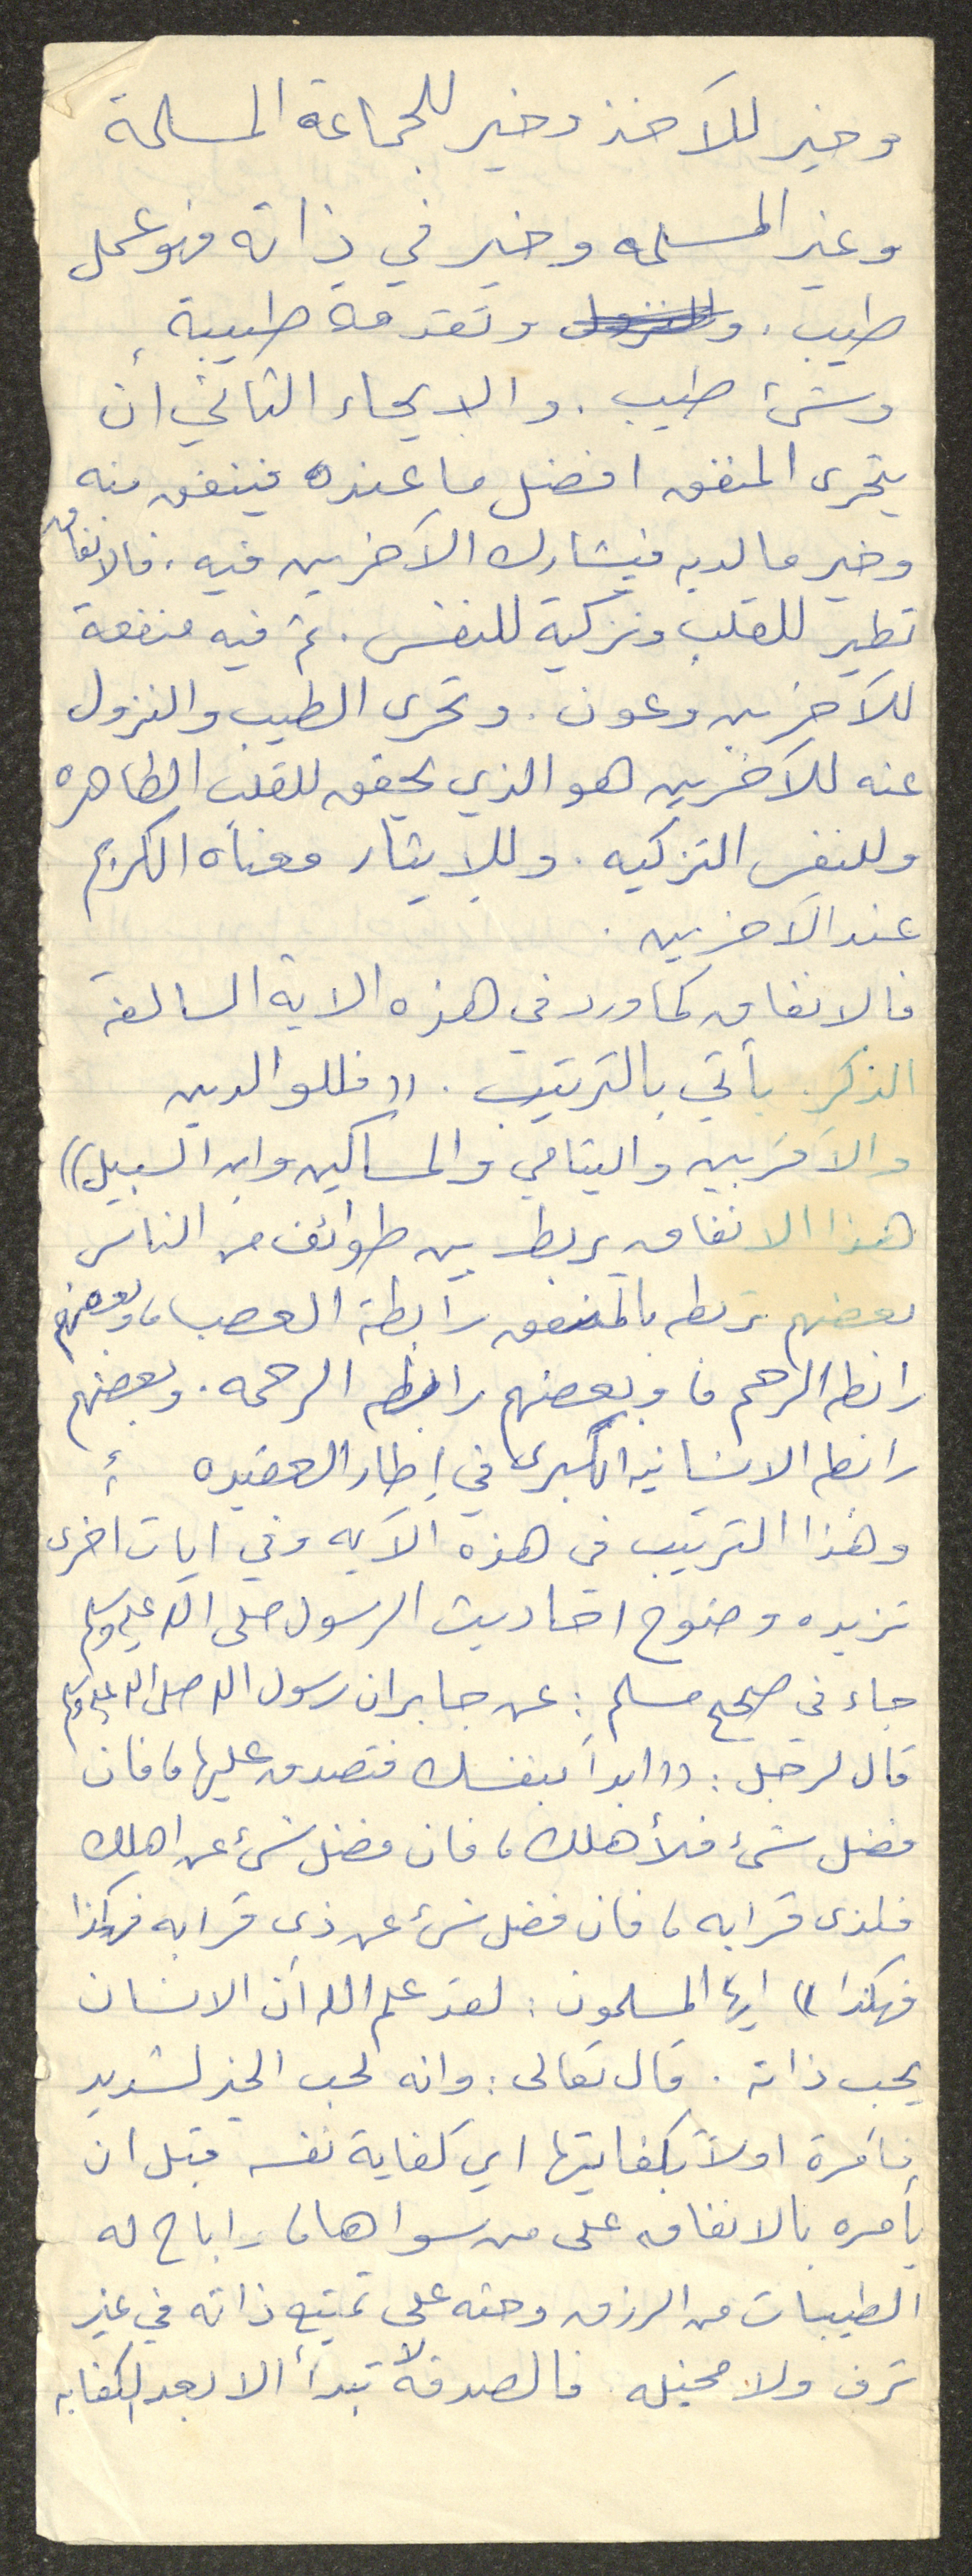 وخير للآخذ وخير للجماعة المسلمة
وغير المسلمه وخير في ذاته فهو عمل
طيب . وتقدمة طيبة
وشئ طيب . والايحاء الثاني ان
يتحرى المنفق افضل ما عنده فينفق منه
وخير ما لديه فيشارك الآخرين فيه . فالانفاق
تطير للقلب وتزكية للنفس . ثم فيه منفعة
للآخرين وعون . وتحرى الطيب والنزول
عنه للآخرين هو الذي يحقق للقلب الطاهره
وللنفس التزكيه . وللايثار معناه الكريم
عند الآخرين .
فالانفاق كما ورد في هذه الاية السالفة
الذكر . يأتي بالترتيب . (( فللوالدين
والآقربين واليتامي والمساكين وابن السبيل ))
هذا الانفاق يربط بين طوائف من الناس
بعضهم تربطه بالمنفق رابطة العصب ، وبعضهم
رابطه الرحم ، وبعضهم رابطه الرحمه . وبعضهم
رابطه الانسانيه الكبرى في إطار العقيده
وهذا الترتيب في هذه الآيه وفي ايات اخرى
تزيده وضوح احاديث الرسول صلى الله عليه وسلم
جاء في صحيح مسلم : عن جابر ان رسول الله صلى الله عليه وسلم
قال لرجل : (( ابدأ بنفسك فتصدق عليها ، فان
فضل شئ فلأهلك ، فان فضل شئ عن اهلك
فلذى قرابه ، فان فضل شئ عن ذى قرابه فهكذا
فهكذا )) ايها المسلمون : لقد علم الله أن الانسان
يحب ذاته . قال تعالى : وانه لحب الخير لشديد
فأمرة اولاً بكفايتها اي كفاية نفسه قبل ان
يأمره بالانفاق على من سواها ، واباح له
الطيبات من الرزق وحثه على تمتيع ذاته في غير
ترف ولا مخيله . فالصدقة لا تبدأ الا بعد الكفايه